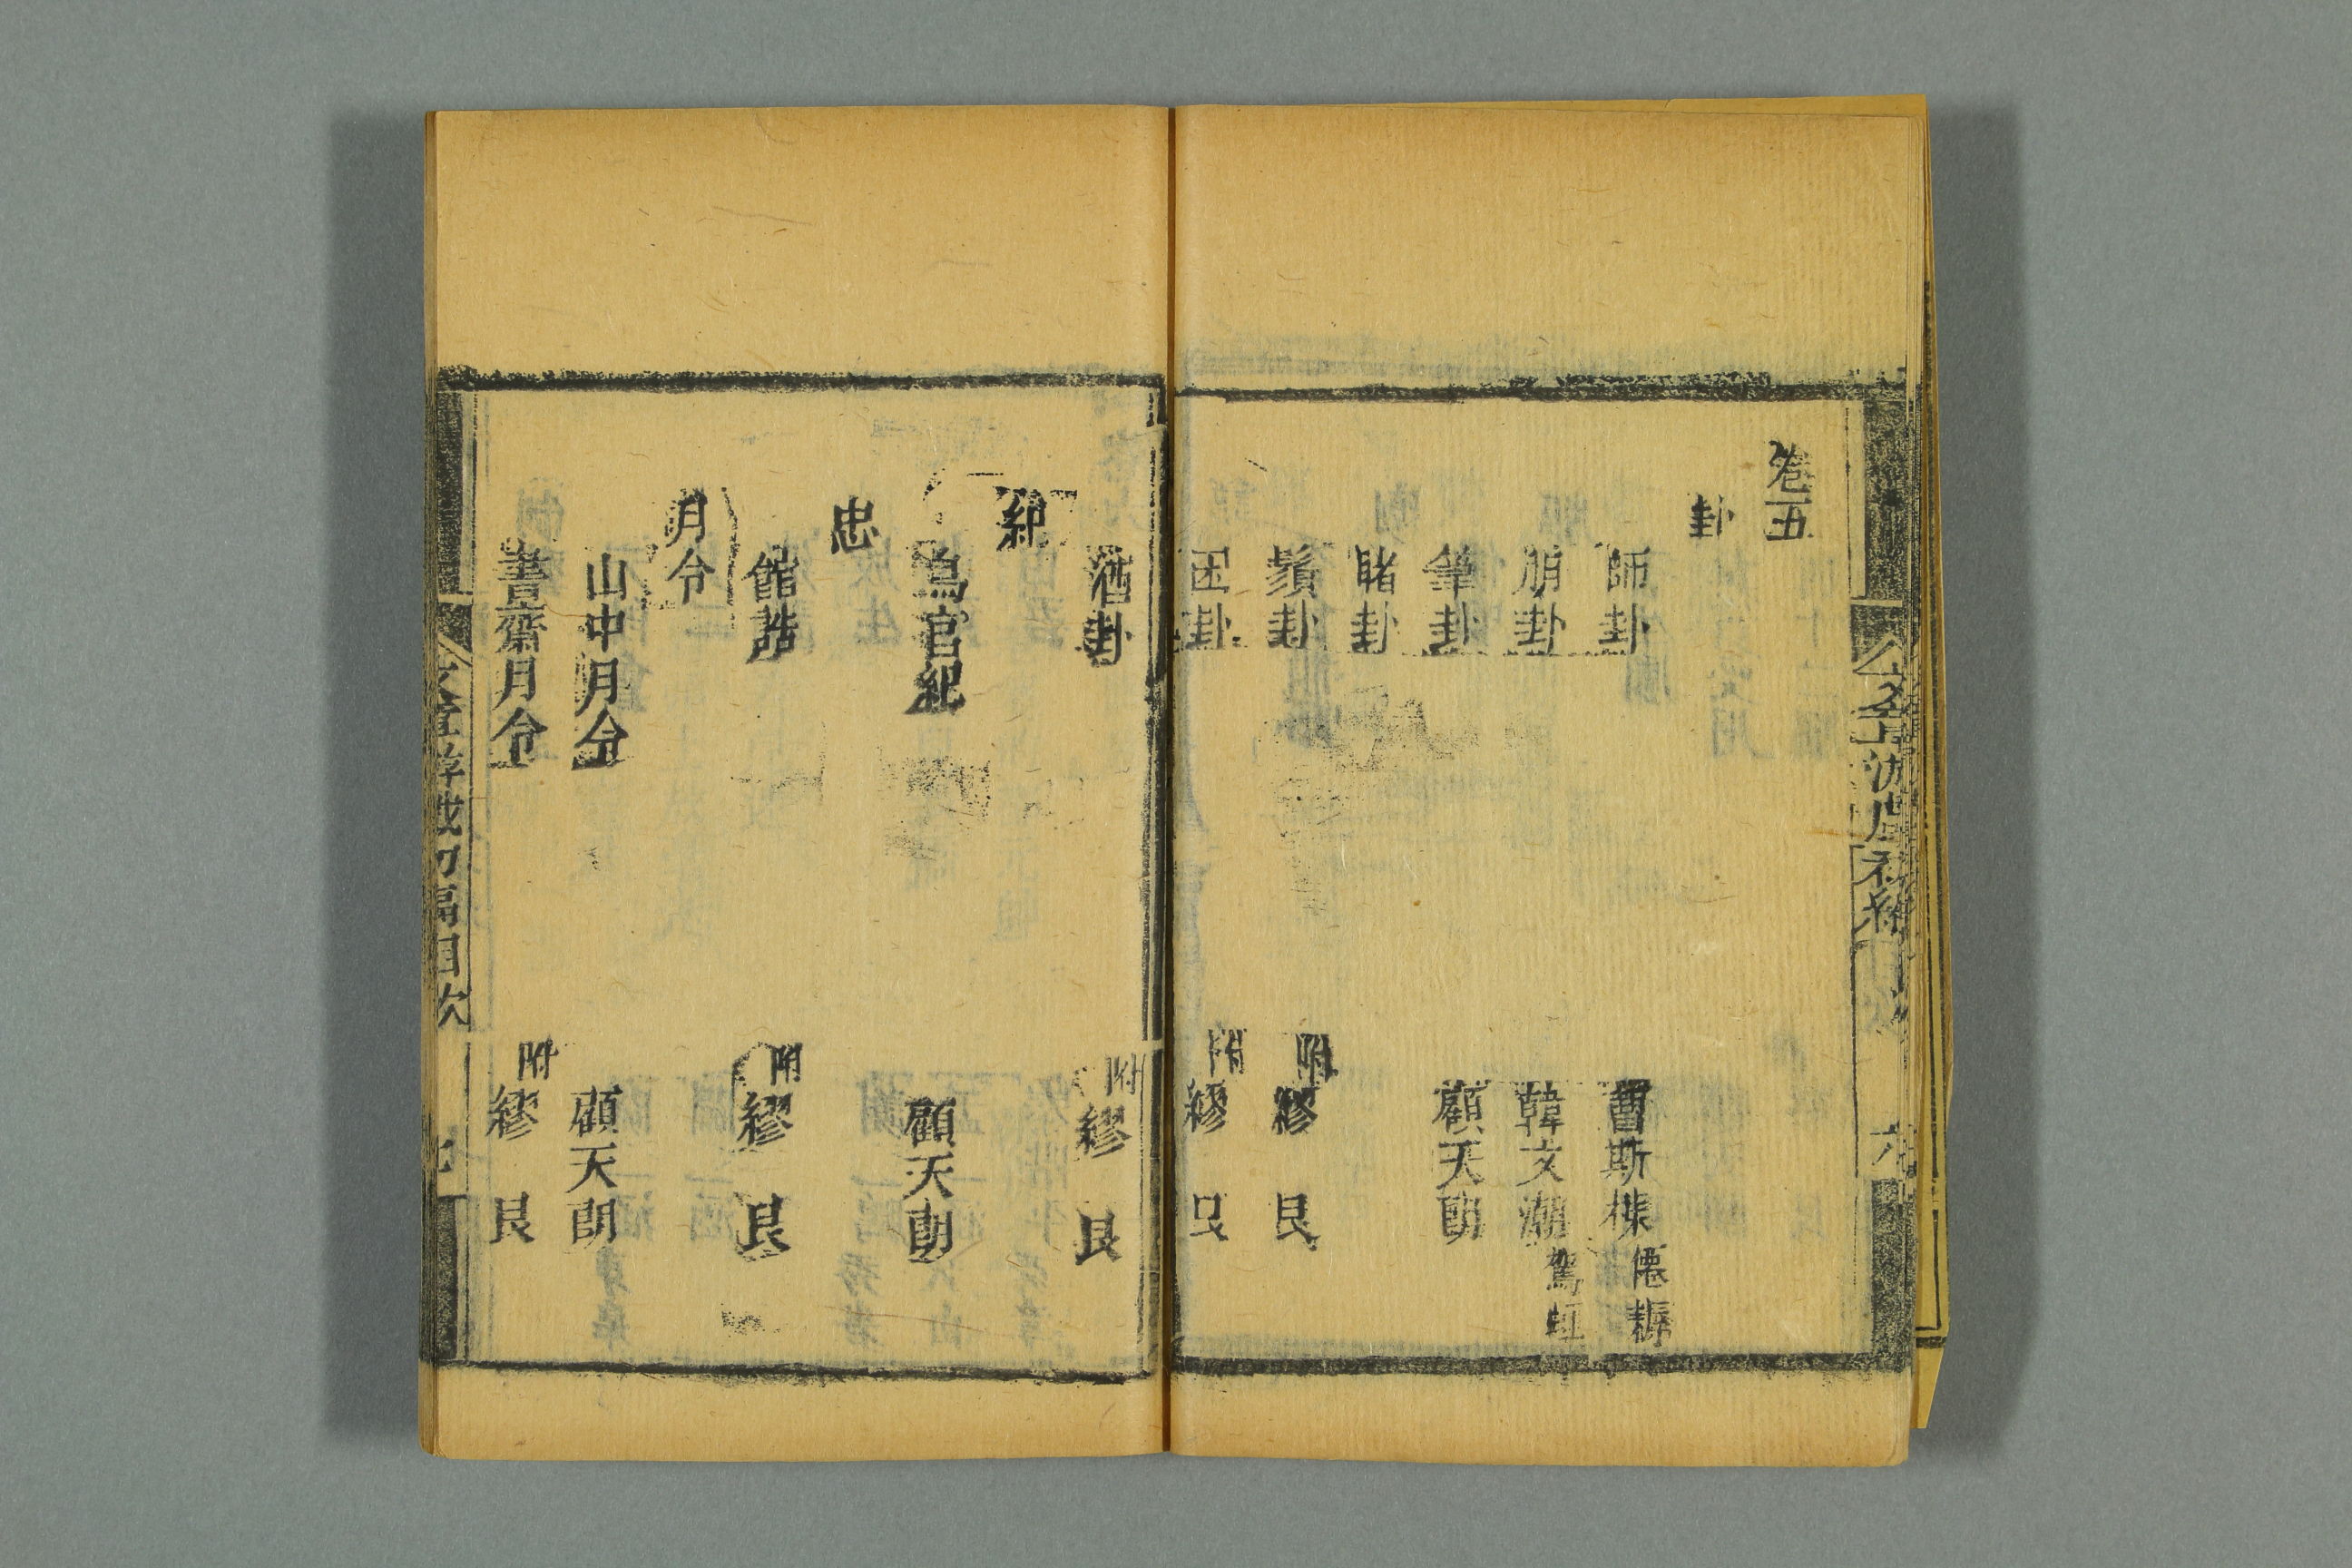 卷五
卦
師卦 曹斯棟僊耨
朋卦 韓文潮駕虹
筆卦 顧天朗
賭卦
鬚卦 附繆艮
困卦 附繆艮
酒卦 附繆艮
紀
鳥官紀 顧天朗
忠
館誥 附繆艮
月令
山中月令 顧天朗
書齋月令 附繆艮
文章游戲初編目次 七